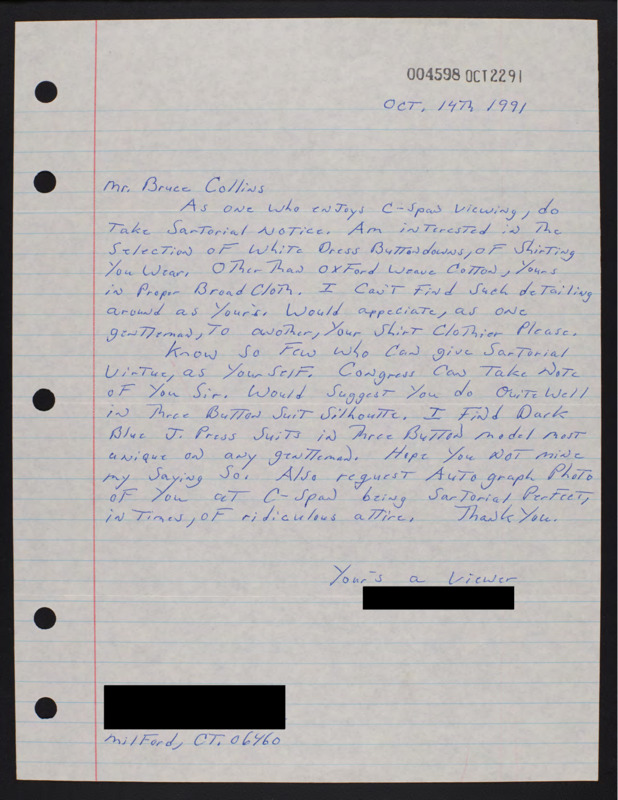 004598 OCT2291
OCT. 14Th 1991
Mr. Bruce Collins
As one who enjoys C-Span viewing, do
Take Sartorial Notice. Am interested in The
Selection of White Dress Buttondowns, of Shirting
You Wear. Other Than Oxford Weave Cotton, Yours
in Proper Broad Cloth. I Can't Find Such detailing
around as Yours. Would appeciate, as one
gentleman, To another, Your Shirt Clothier Please.
Know so Few who Can give Sartorial
Virtue, as Yourself. Congress Can Take Note
of You Sir. Would Suggest You do Quite Well
in Three Button Suit Silhoutte. I Find Dark
Blue J. Press Suits in Three Button model most
unique on any gentleman. Hope You Not mine
my Saying So. Also request Autograph Photo
of You at C-Span being Sartorial Perfect,
in Times, of ridiculous attire. Thank You.
Your's a Viewer
Milford, CT. 06460